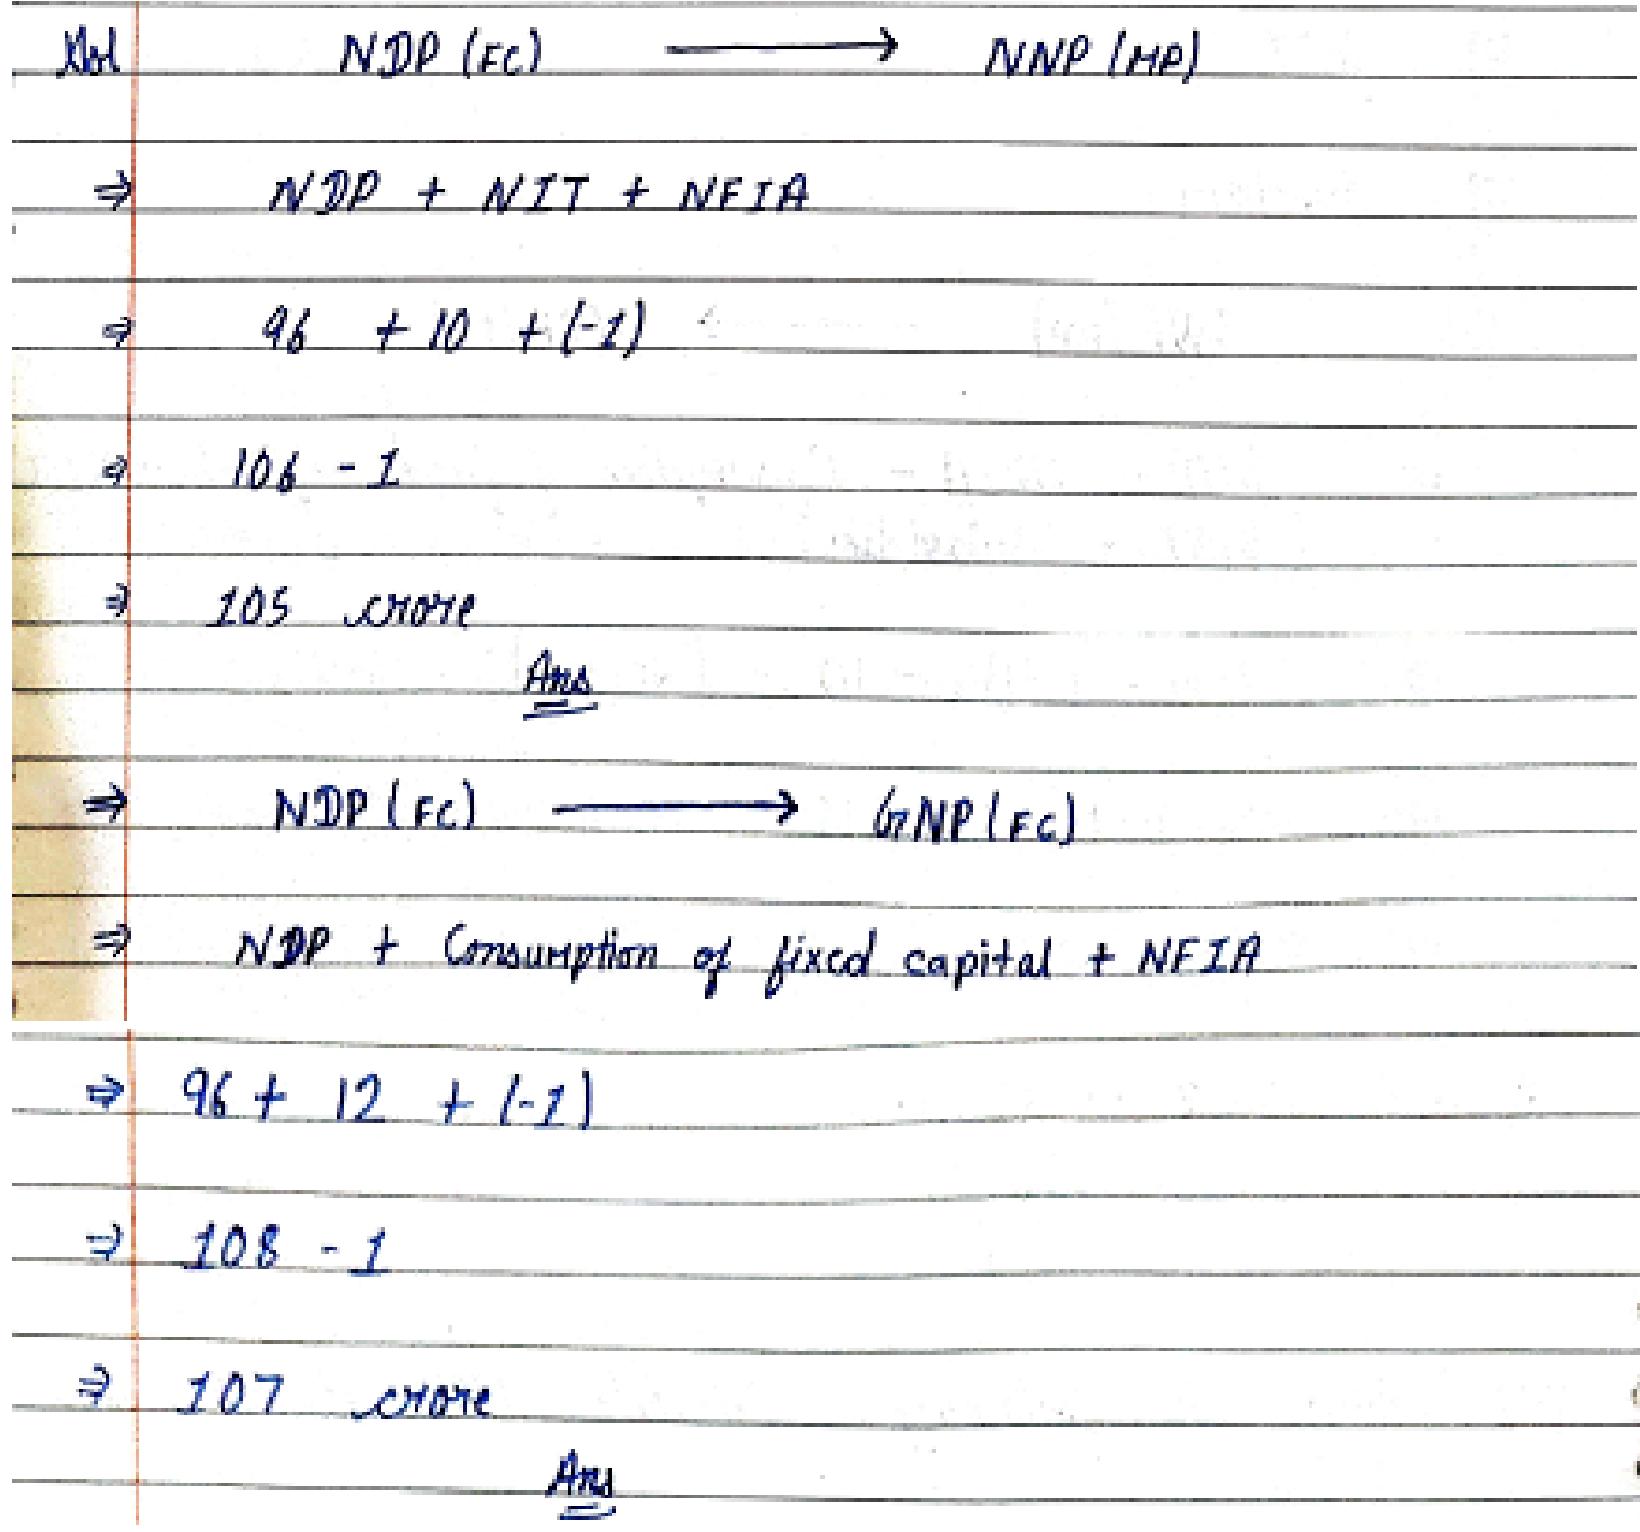 Sol NDP (FC) ⟶ NNP (MP)
⇒ NDP + NIT + NFIA
⇒ 96 + 10 + (-1)
⇒ 106 - 1
⇒ 105 crore
Ans
⇒ NDP (FC) ⟶ GNP (FC)
⇒ NDP + Consumption of fixed capital + NFIA
⇒ 96 + 12 + (-1)
⇒ 108 - 1
⇒ 107 crore
Ans